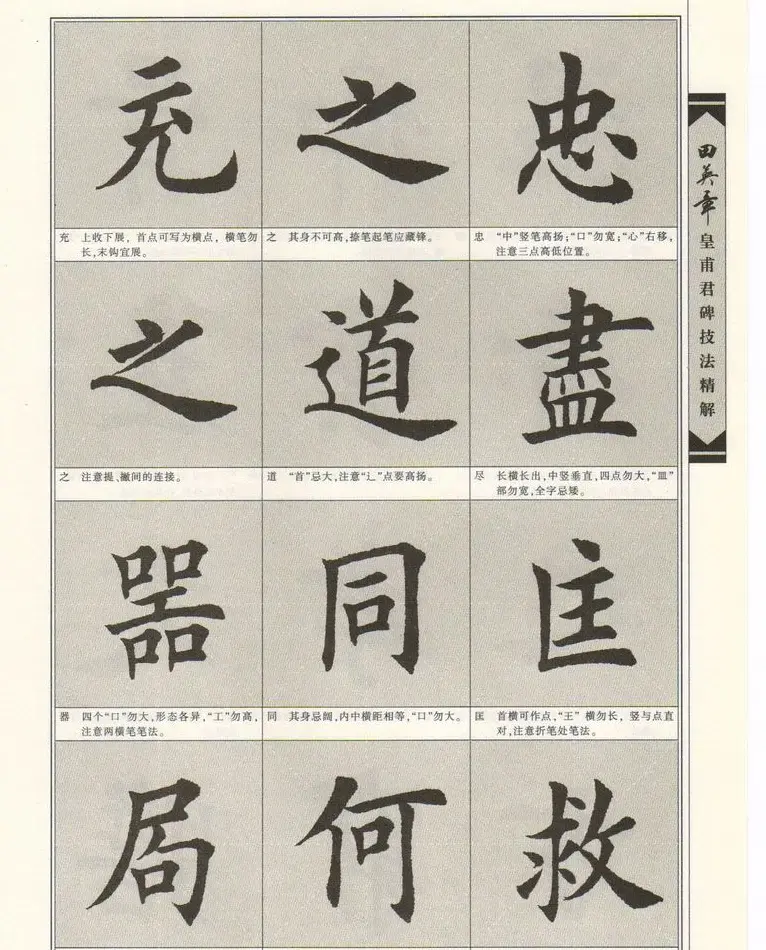 田英章 皇甫君碑技法精解
忠
忠 “中”竖笔高扬；“口”勿宽；“心”右移，
注意三点高低位置。
盡
尽 长横长出，中竖垂直，四点勿大，“皿”
部勿宽，全字忌矮。
匡
匡 首横可作点，“王”横勿长，竖与点直
对，注意折笔处笔法。
救
之
之 其身不可高，捺笔起笔应藏锋。
道
道 “首”忌大，注意“辶”点要高扬。
同
同 其身忌阔，内中横距相等，“口”勿大。
何
充
充 上收下展，首点可写为横点，横笔勿
长，末钩宜展。
之
之 注意提、撇间的连接。
器
器 四个“口”勿大，形态各异，“工”勿高，
注意两横笔笔法。
局